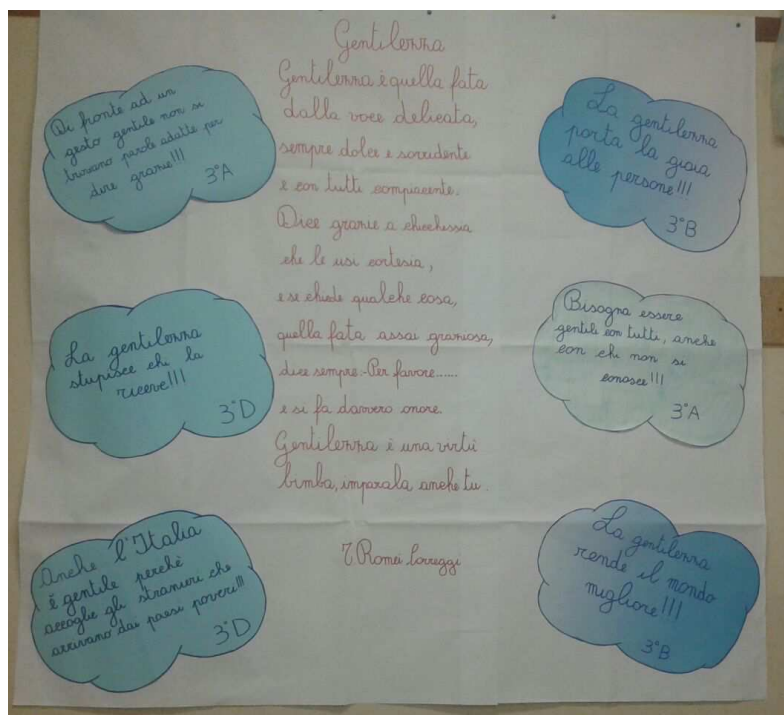 Gentilezza
Gentilezza è quella fata
dalla voce delicata,
sempre dolce e sorridente
e con tutti compiacente.
Dice grazie a chicchessia
che le usi cortesia,
e se chiede qualche cosa,
quella fata assai graziosa,
dice sempre:-Per favore......
e si fa davvero onore.
Gentilezza è una virtù
bimba, imparala anche tu.
T Romei Correggi
Di fronte ad un
gesto gentile non si
trovano parole adatte per
dire grazie!!!
3°A
La gentilezza
stupisce chi la
riceve!!!
3°D
Anche l'Italia
é gentile perchè
accoglie gli stranieri che
arrivano dai paesi poveri!!!
3°D
La gentilezza
porta la gioia
alle persone!!!
3°B
Bisogna essere
gentili con tutti, anche
con chi non si
conosce!!!
3°A
La gentilezza
rende il mondo
migliore!!!
3°B